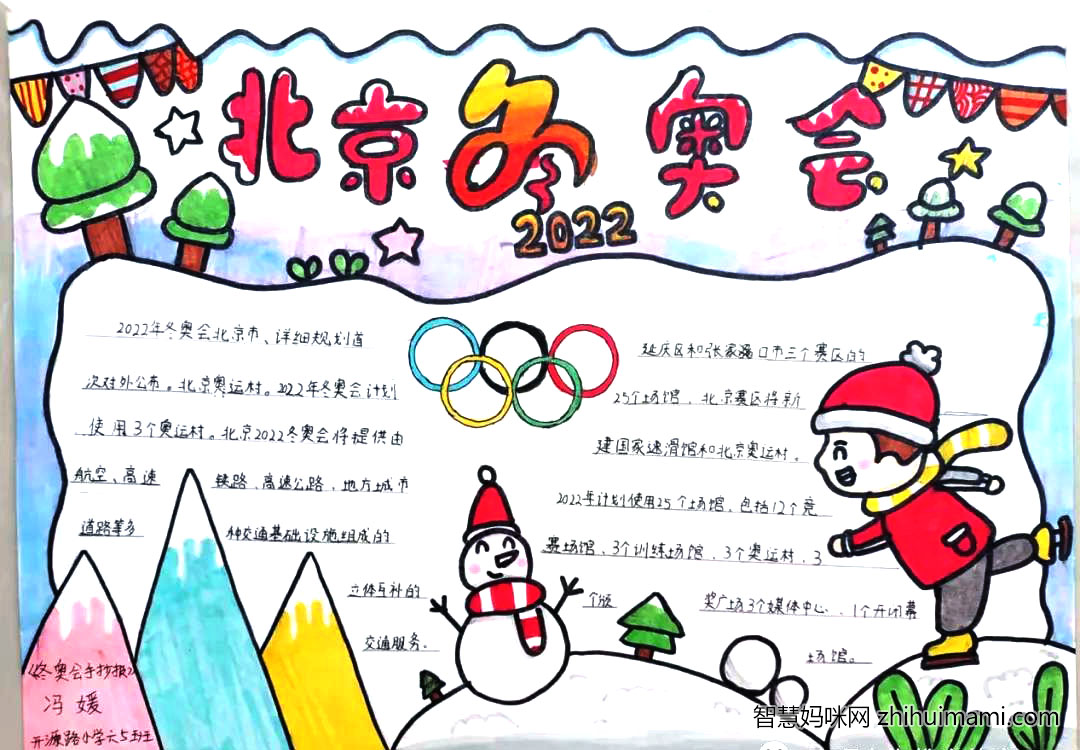 北京冬奥会
2022
2022年冬奥会北京市、详细规划首
次对外公布。北京奥运村。2022年冬奥会计划
使用3个奥运村。北京2022冬奥会将提供由
航空、高速 铁路、高速公路、地方城市
道路等多 种交通基础设施组成的
立体互补的
交通服务。
延庆区和张家口市三个赛区的
25个场馆,北京赛区将新
建国家速滑馆和北京奥运村。
2022年计划使用25个场馆,包括12个竞
赛场馆、3个训练场馆、3个奥运村、3
个颁 奖广场3个媒体中心、1个开闭幕
场馆。
《冬奥会手抄报》
冯媛
开源路小学六5班
智慧妈咪网 zhihuimami.com